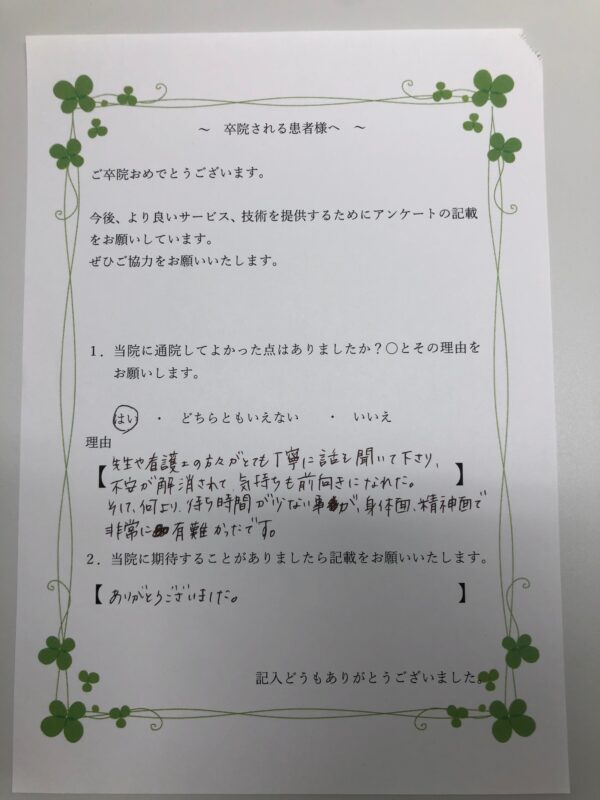 ～ 卒院される患者様へ ～
ご卒院おめでとうございます。
今後、より良いサービス、技術を提供するためにアンケートの記載
をお願いしています。
ぜひご協力をお願いいたします。
１．当院に通院してよかった点はありましたか？〇とその理由を
お願いします。
はい ・ どちらともいえない ・ いいえ
理由
【先生や看護士の方々がとても丁寧に話を聞いて下さり、
不安が解消されて、気持ちも前向きになれた。】
そして、何より、待ち時間が少ない事が、身体面、精神面で
非常に有難かったです。
２．当院に期待することがありましたら記載をお願いいたします。
【ありがとうございました。】
記入どうもありがとうございました。